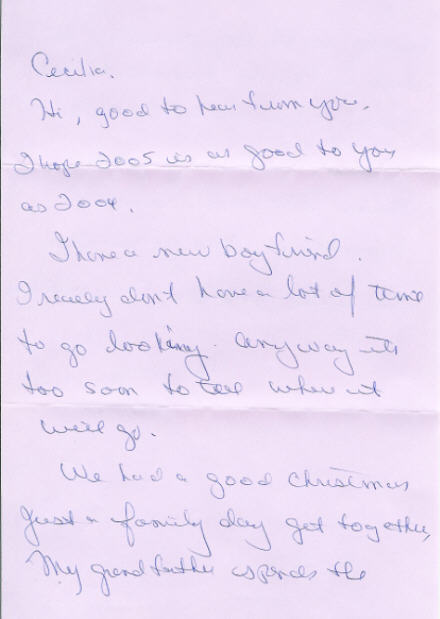 Cecilia.
Hi, good to hear from you.
I hope 2005 is as good to you
as 2004.
I have a new boyfriend.
I really don't have a lot of time
to go looking. Anyway its
too soon to tell where it
we'll go.
We had a good Christmas
just a family day get together,
My grandfather spends the